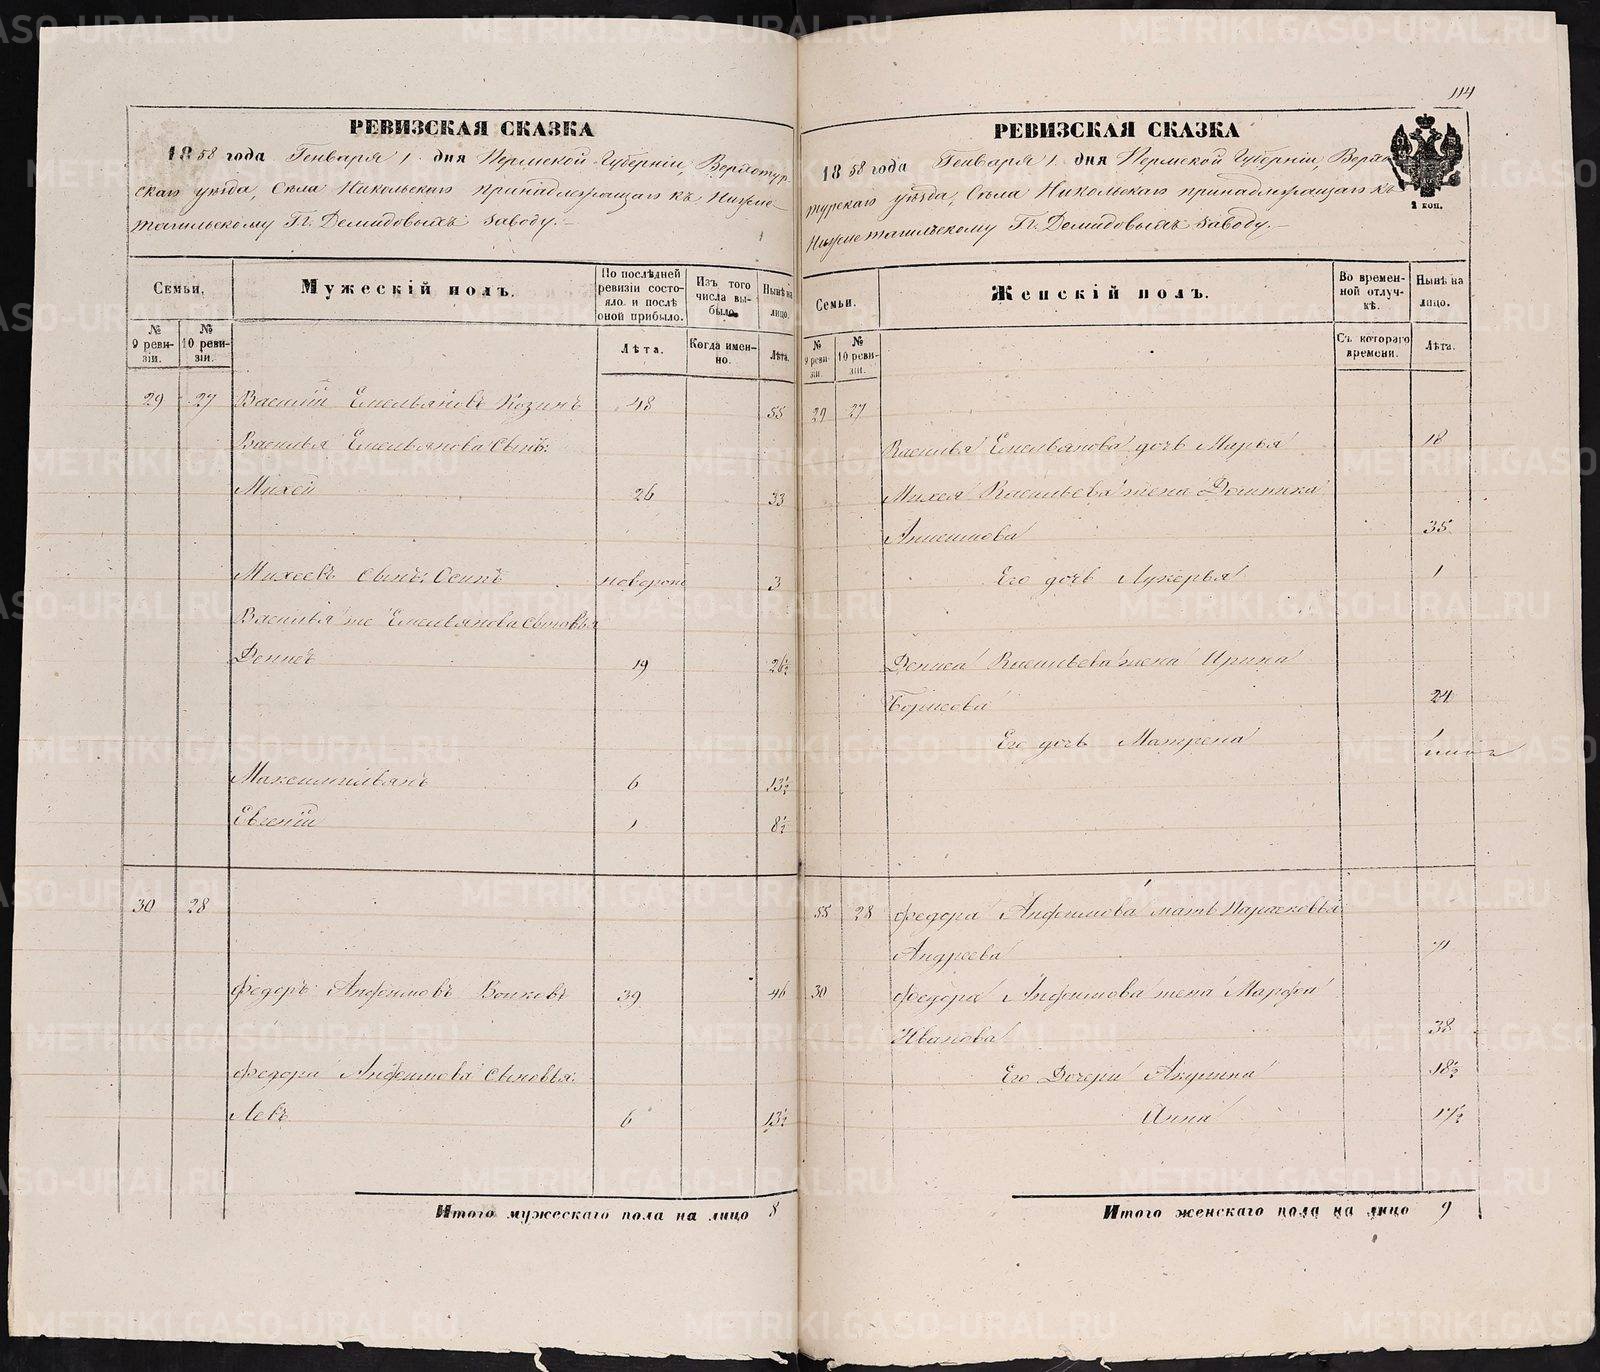 114
РЕВИЗСКАЯ СКАЗКА
1858 года Генваря 1 дня Пермской Губерніи, Верхотур-
скаго уѣзда, Села Никольскаго принадлежащаго къ Нижне-
тагильскому Гг. Демидовыхъ заводу.
Семьи.
Мужескій полъ.
По послѣдней ревизіи состо-яло. и послѣ оной прибыло.
Изъ того числа вы-было.
Нынѣ на лицо.
№ 9 реви-зіи.
№ 10 реви-зіи.
Лѣта.
Когда имен-но.
Лѣта.
29 27 Василій Емельяновъ Козинъ 48 55
Василья Емельянова Сынъ:
Михей 26 33
Михеевъ сынъ: Осипъ новорож 3
Василья же Емельянова сыновья
Денисъ 19 26½
Максимильянъ 6 13½
Евгеній 1 8½
30 28
Федоръ Анфимовъ Волковъ 39 46
Федора Анфимова Сыновья:
Левъ 6 13½
Итого мужескаго пола на лицо 8
РЕВИЗСКАЯ СКАЗКА
1858 года Генваря 1 дня Пермской Губерніи, Верхо-
турскаго уѣзда, Села Никольскаго принадлежащаго къ
Нижнетагильскому Гг. Демидовыхъ заводу.
2 коп.
Семьи.
Женскій полъ.
Во времен-ной отлуч-кѣ.
Нынѣ на лицо.
№ 9 реви-зіи.
№ 10 реви-зіи.
Съ котораго времени.
Лѣта.
29 27
Василья Емельянова дочь Марья 18
Михея Васильева жена Домника
Анисимова 35
Его дочь Лукерья 1
Дениса Васильева жена Ирина
Борисова 24
Его дочь Матрена
55 28 Федора Анфимова мать Парасковья
Андреева 71
30 Федора Анфимова жена Марфа
Иванова 38
Его Дочери Акулина 18½
Анна 17½
Итого женскаго пола на лицо 9
METRIKI.GASO-URAL.RU